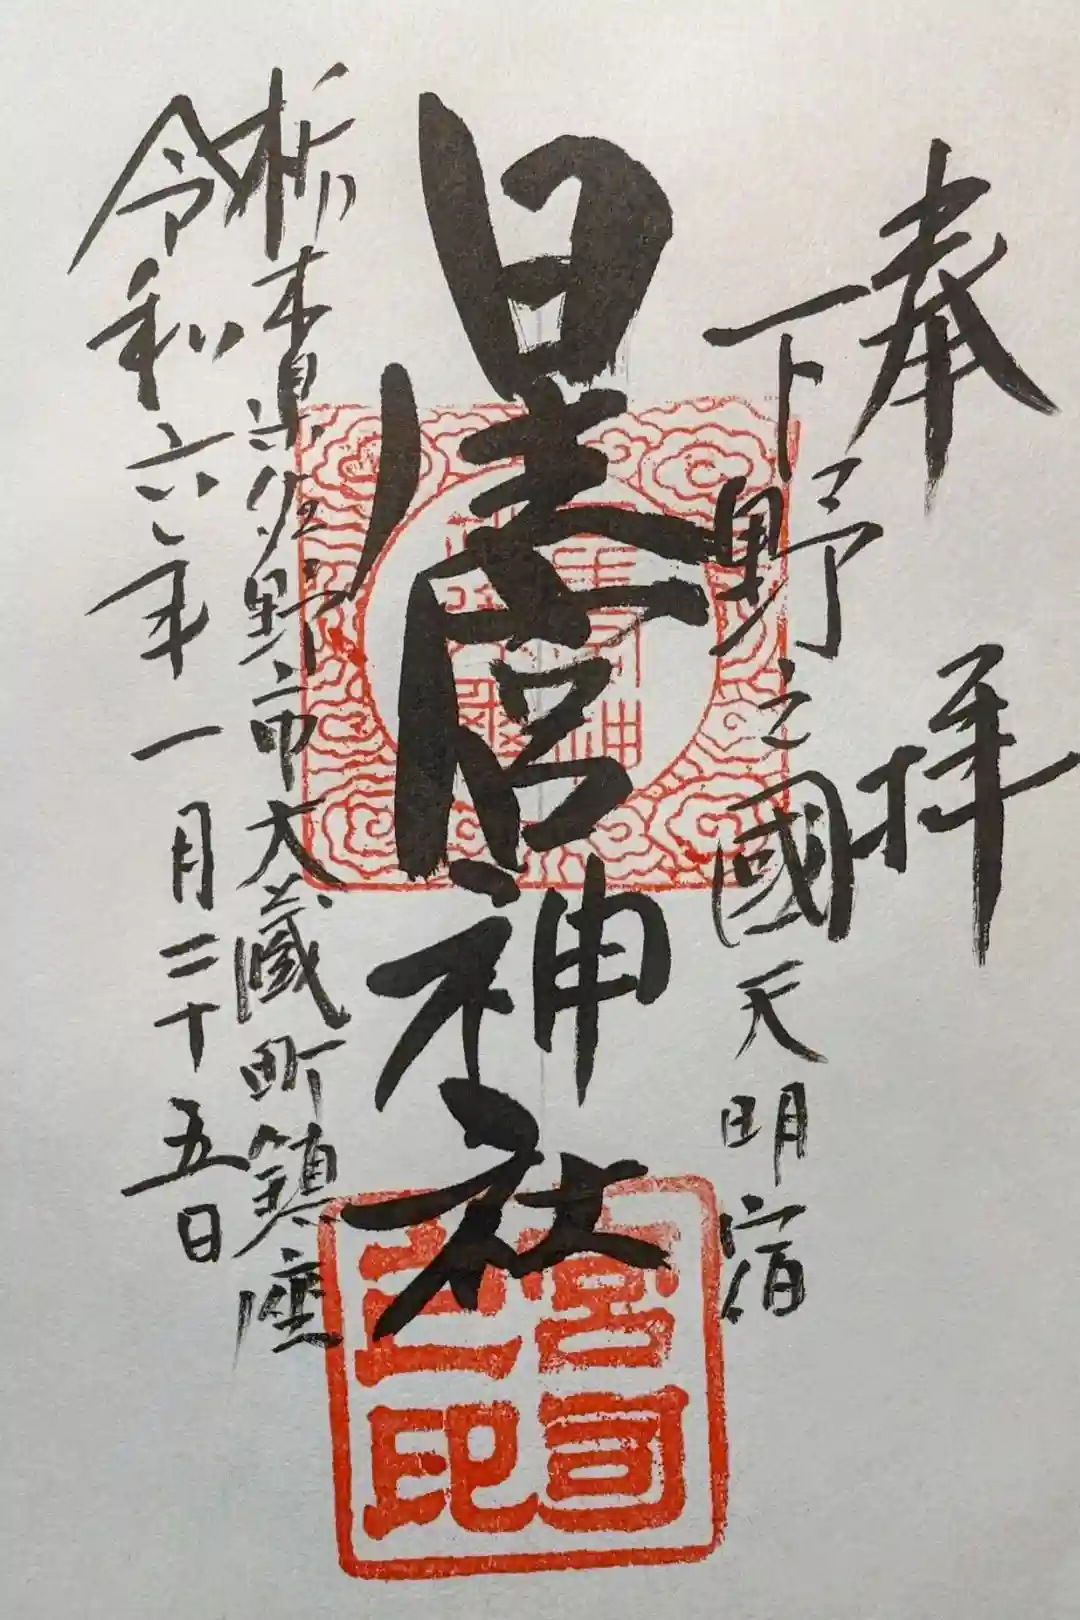 奉拝
下野之國天明宿
星宮神社
栃木県佐野市大蔵町鎮座
令和六年一月二十五日
宮司
之印